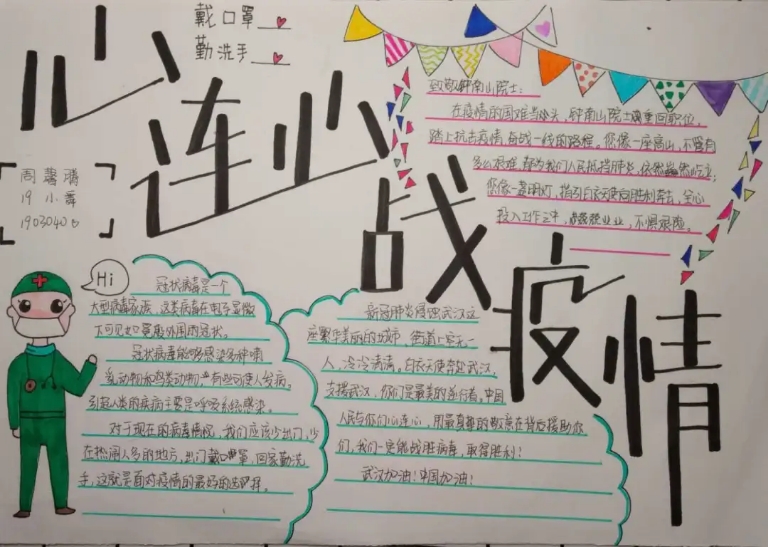 戴口罩
勤洗手
心连心
战疫情
周馨
19小
1903040
致敬钟南山院士:
在疫情的国难当头,钟南山院士重回职位,
踏上抗击疫情奋战一线的路程。您像一座高山,不管有
多么艰难,替为我们人民抵挡肺炎,依然屹立;
您像一盏明灯,指引白衣天使向胜利奔去,全心
投入工作之中,兢兢业业,不惧艰险。
Hi
冠状病毒是一个
大型病毒家族,这类病毒在电子显微
下可见如冕般外围的冠状。
冠状病毒能够感染多种哺
乳动物和鸟类动物,有些可使人发病。
引起人类的疾病主要是呼吸系统感染。
对于现在的病毒情况,我们应该少出门,少
在热闹人多的地方,出门戴口罩,回家勤洗
手,这就是面对疫情的最好的选择。
新冠肺炎武汉这
座繁华美丽的城市,街道上空无一
人,冷冷清清。白衣天使奔赴武汉,
支援武汉,你们是最美的逆行者,中国
人民与你们心连心,用最真挚的敬意在背后援助你
们,我们一定能战胜病毒,取得胜利!
武汉加油!中国加油!